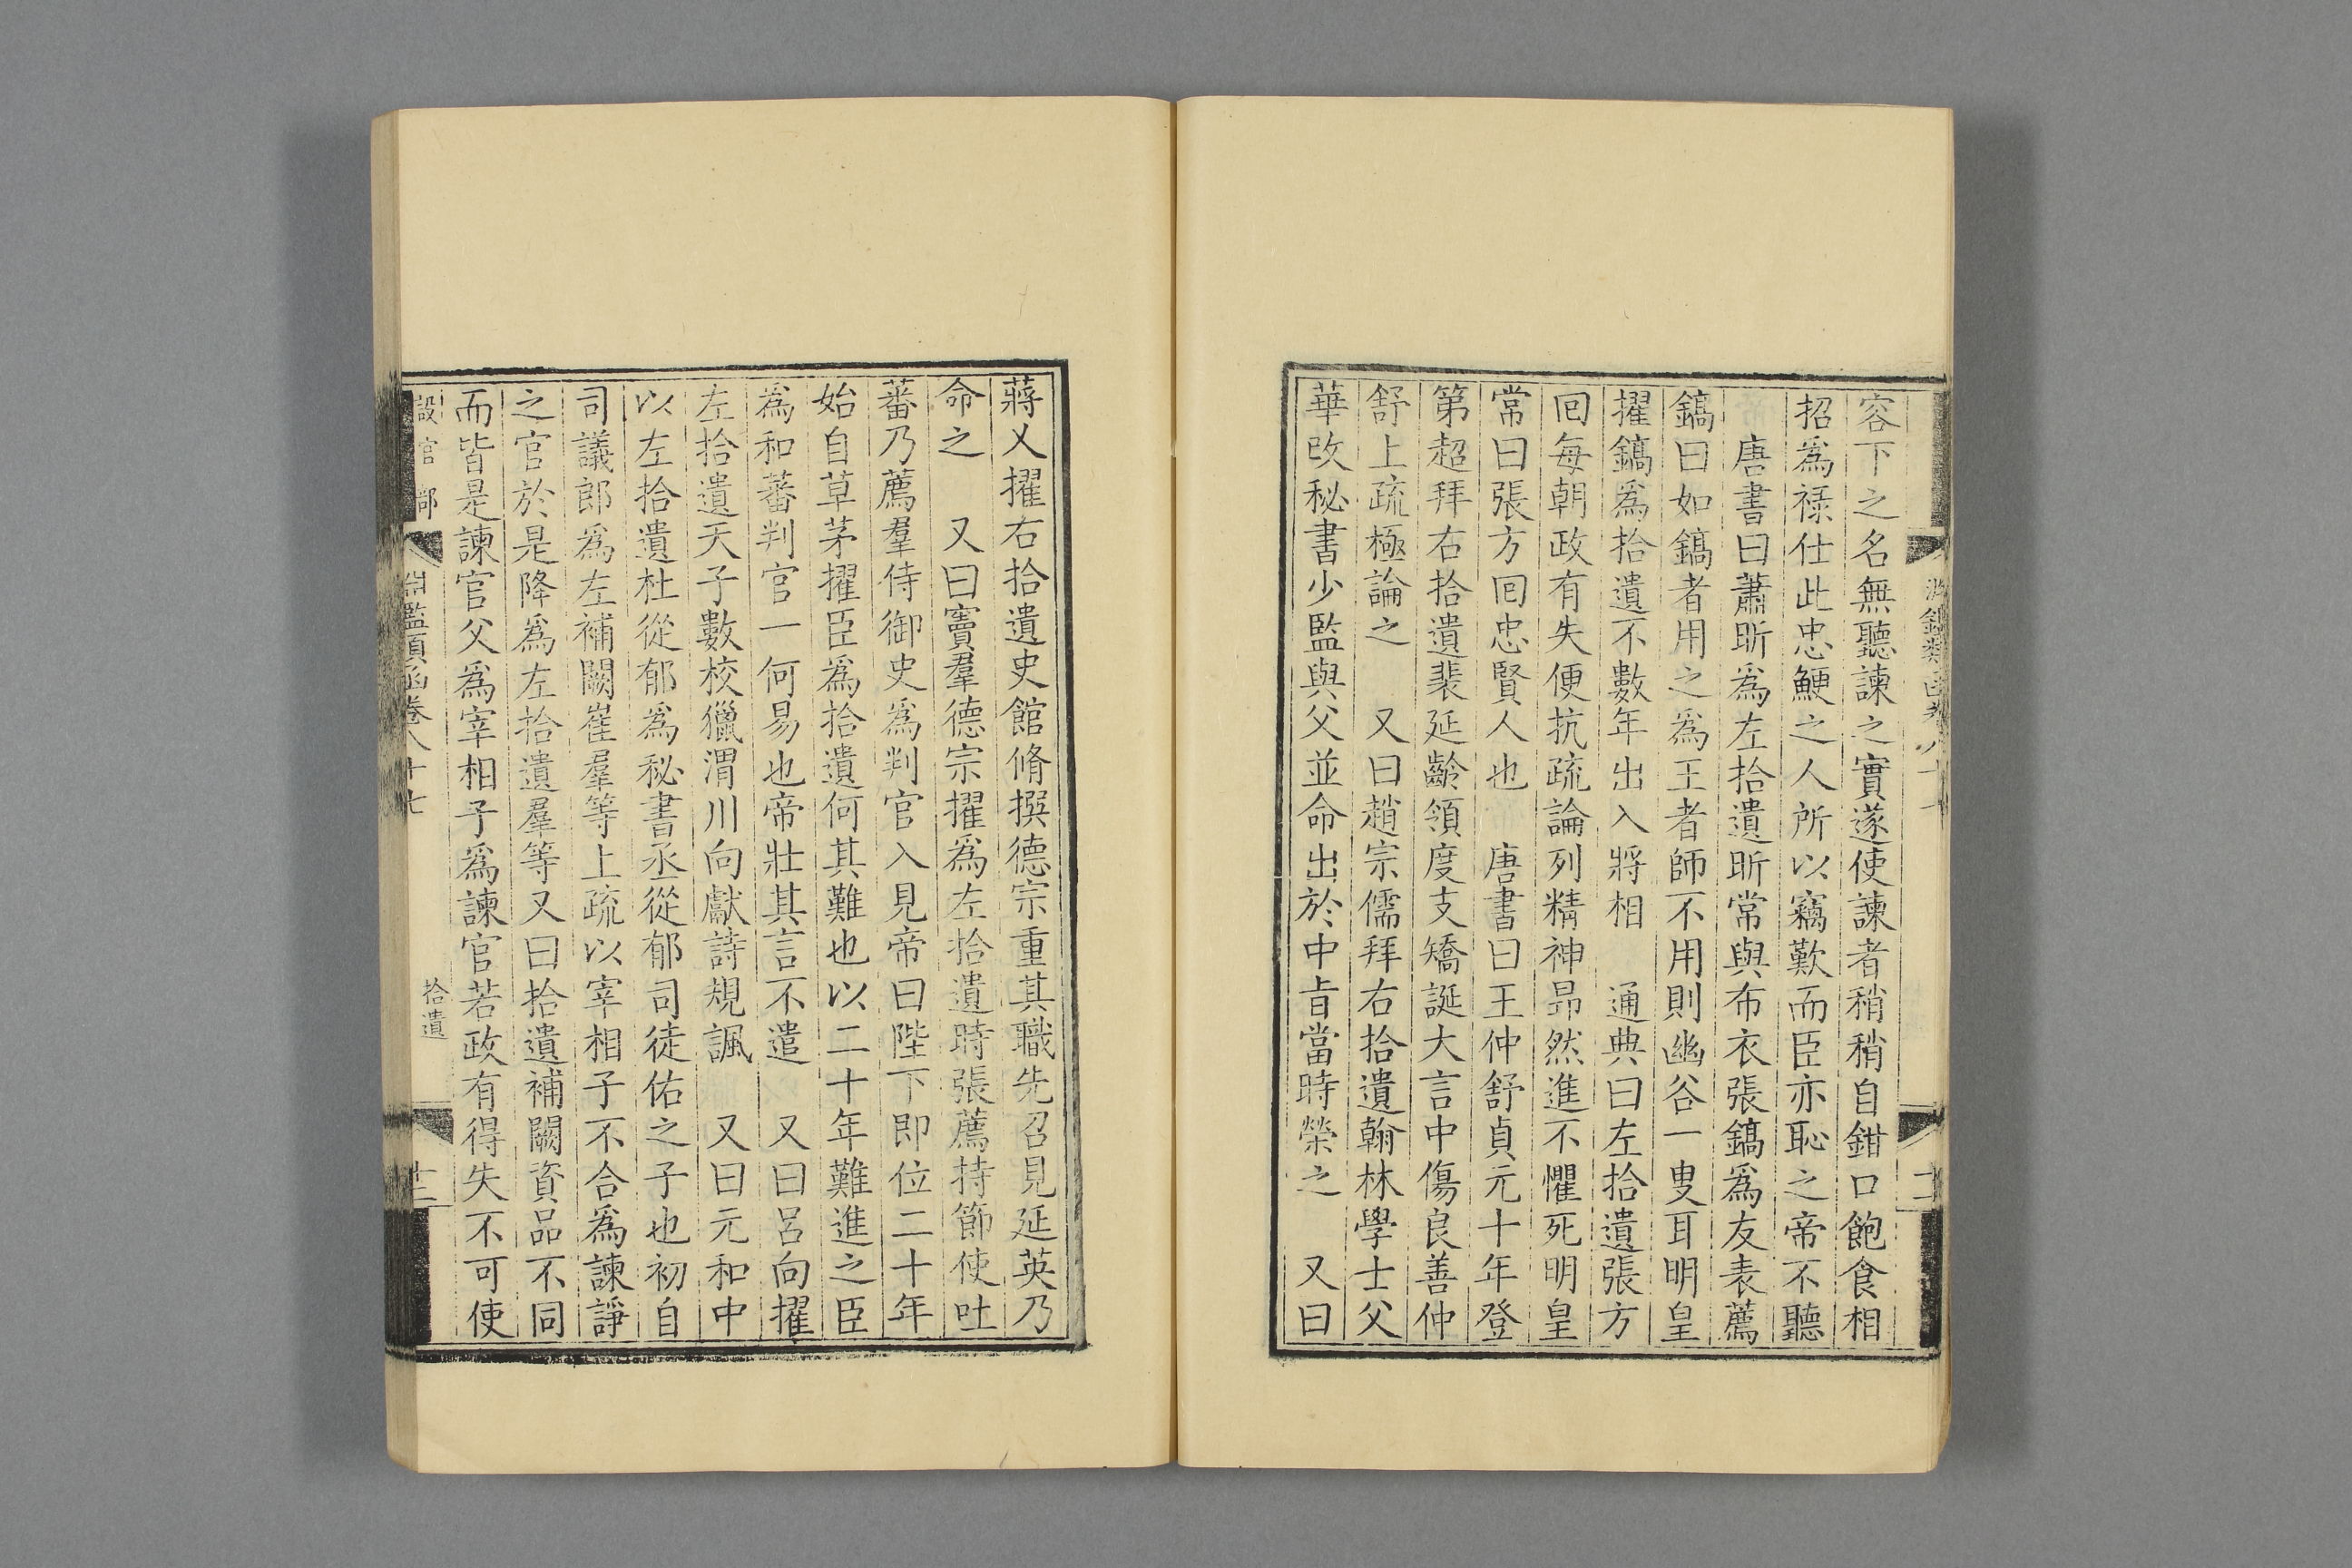 容下之名無聽諫之實遂使諫者稍稍自鉗口飽食相
招爲祿仕此忠鯁之人所以竊歎而臣亦恥之帝不聽
唐書曰蕭昕爲左拾遺昕常與布衣張鎬爲友表薦
鎬曰如鎬者用之爲王者師不用則幽谷一叟耳明皇
擢鎬爲拾遺不數年出入將相　通典曰左拾遺張方
回每朝政有失便抗疏論列精神昻然進不懼死明皇
常曰張方回忠賢人也　唐書曰王仲舒貞元十年登
第超拜右拾遺裴延齡領度支矯誕大言中傷良善仲
舒上疏極論之　又曰趙宗儒拜右拾遺翰林學士父
華改秘書少監與父並命出於中旨當時榮之　又曰
蔣乂擢右拾遺史館脩撰德宗重其職先召見延英乃
命之　又曰竇羣德宗擢爲左拾遺時張薦持節使吐
蕃乃薦羣侍御史爲判官入見帝曰陛下即位二十年
始自草茅擢臣爲拾遺何其難也以二十年難進之臣
爲和蕃判官一何易也帝壯其言不遣　又曰呂向擢
左拾遺天子數校獵渭川向獻詩規諷　又曰元和中
以左拾遺杜從郁爲秘書丞從郁司徒佑之子也初自
司議郎爲左補闕崔羣等上疏以宰相子不合爲諫諍
之官於是降爲左拾遺羣等又曰拾遺補闕資品不同
而皆是諫官父爲宰相子爲諫官若政有得失不可使
設官部　淵鑑類函卷八十七　拾遺